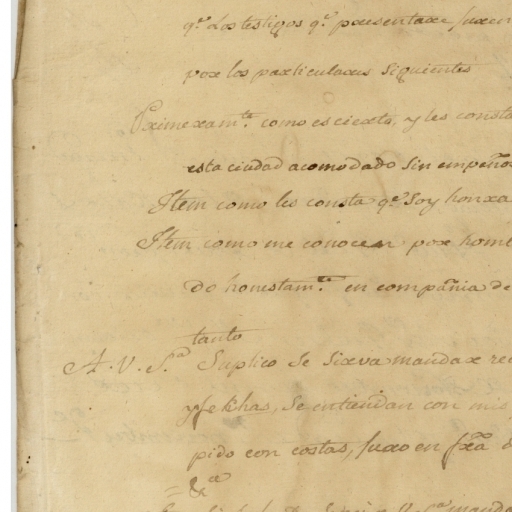 q.e los testigos q.e presentare juren
por los particulares siguientes
Primeram.te como es cierto, y les consta
esta ciudad acomodado sin empeños
Item como les consta q.e soy honra
Item como me conocen por homb
do honestam.te en compañia de
tanto
A. V. S.a Suplico se sirva mandar rec
y fekhas, se entiendan con mis
pido con costas, juro en fxã
= &ce